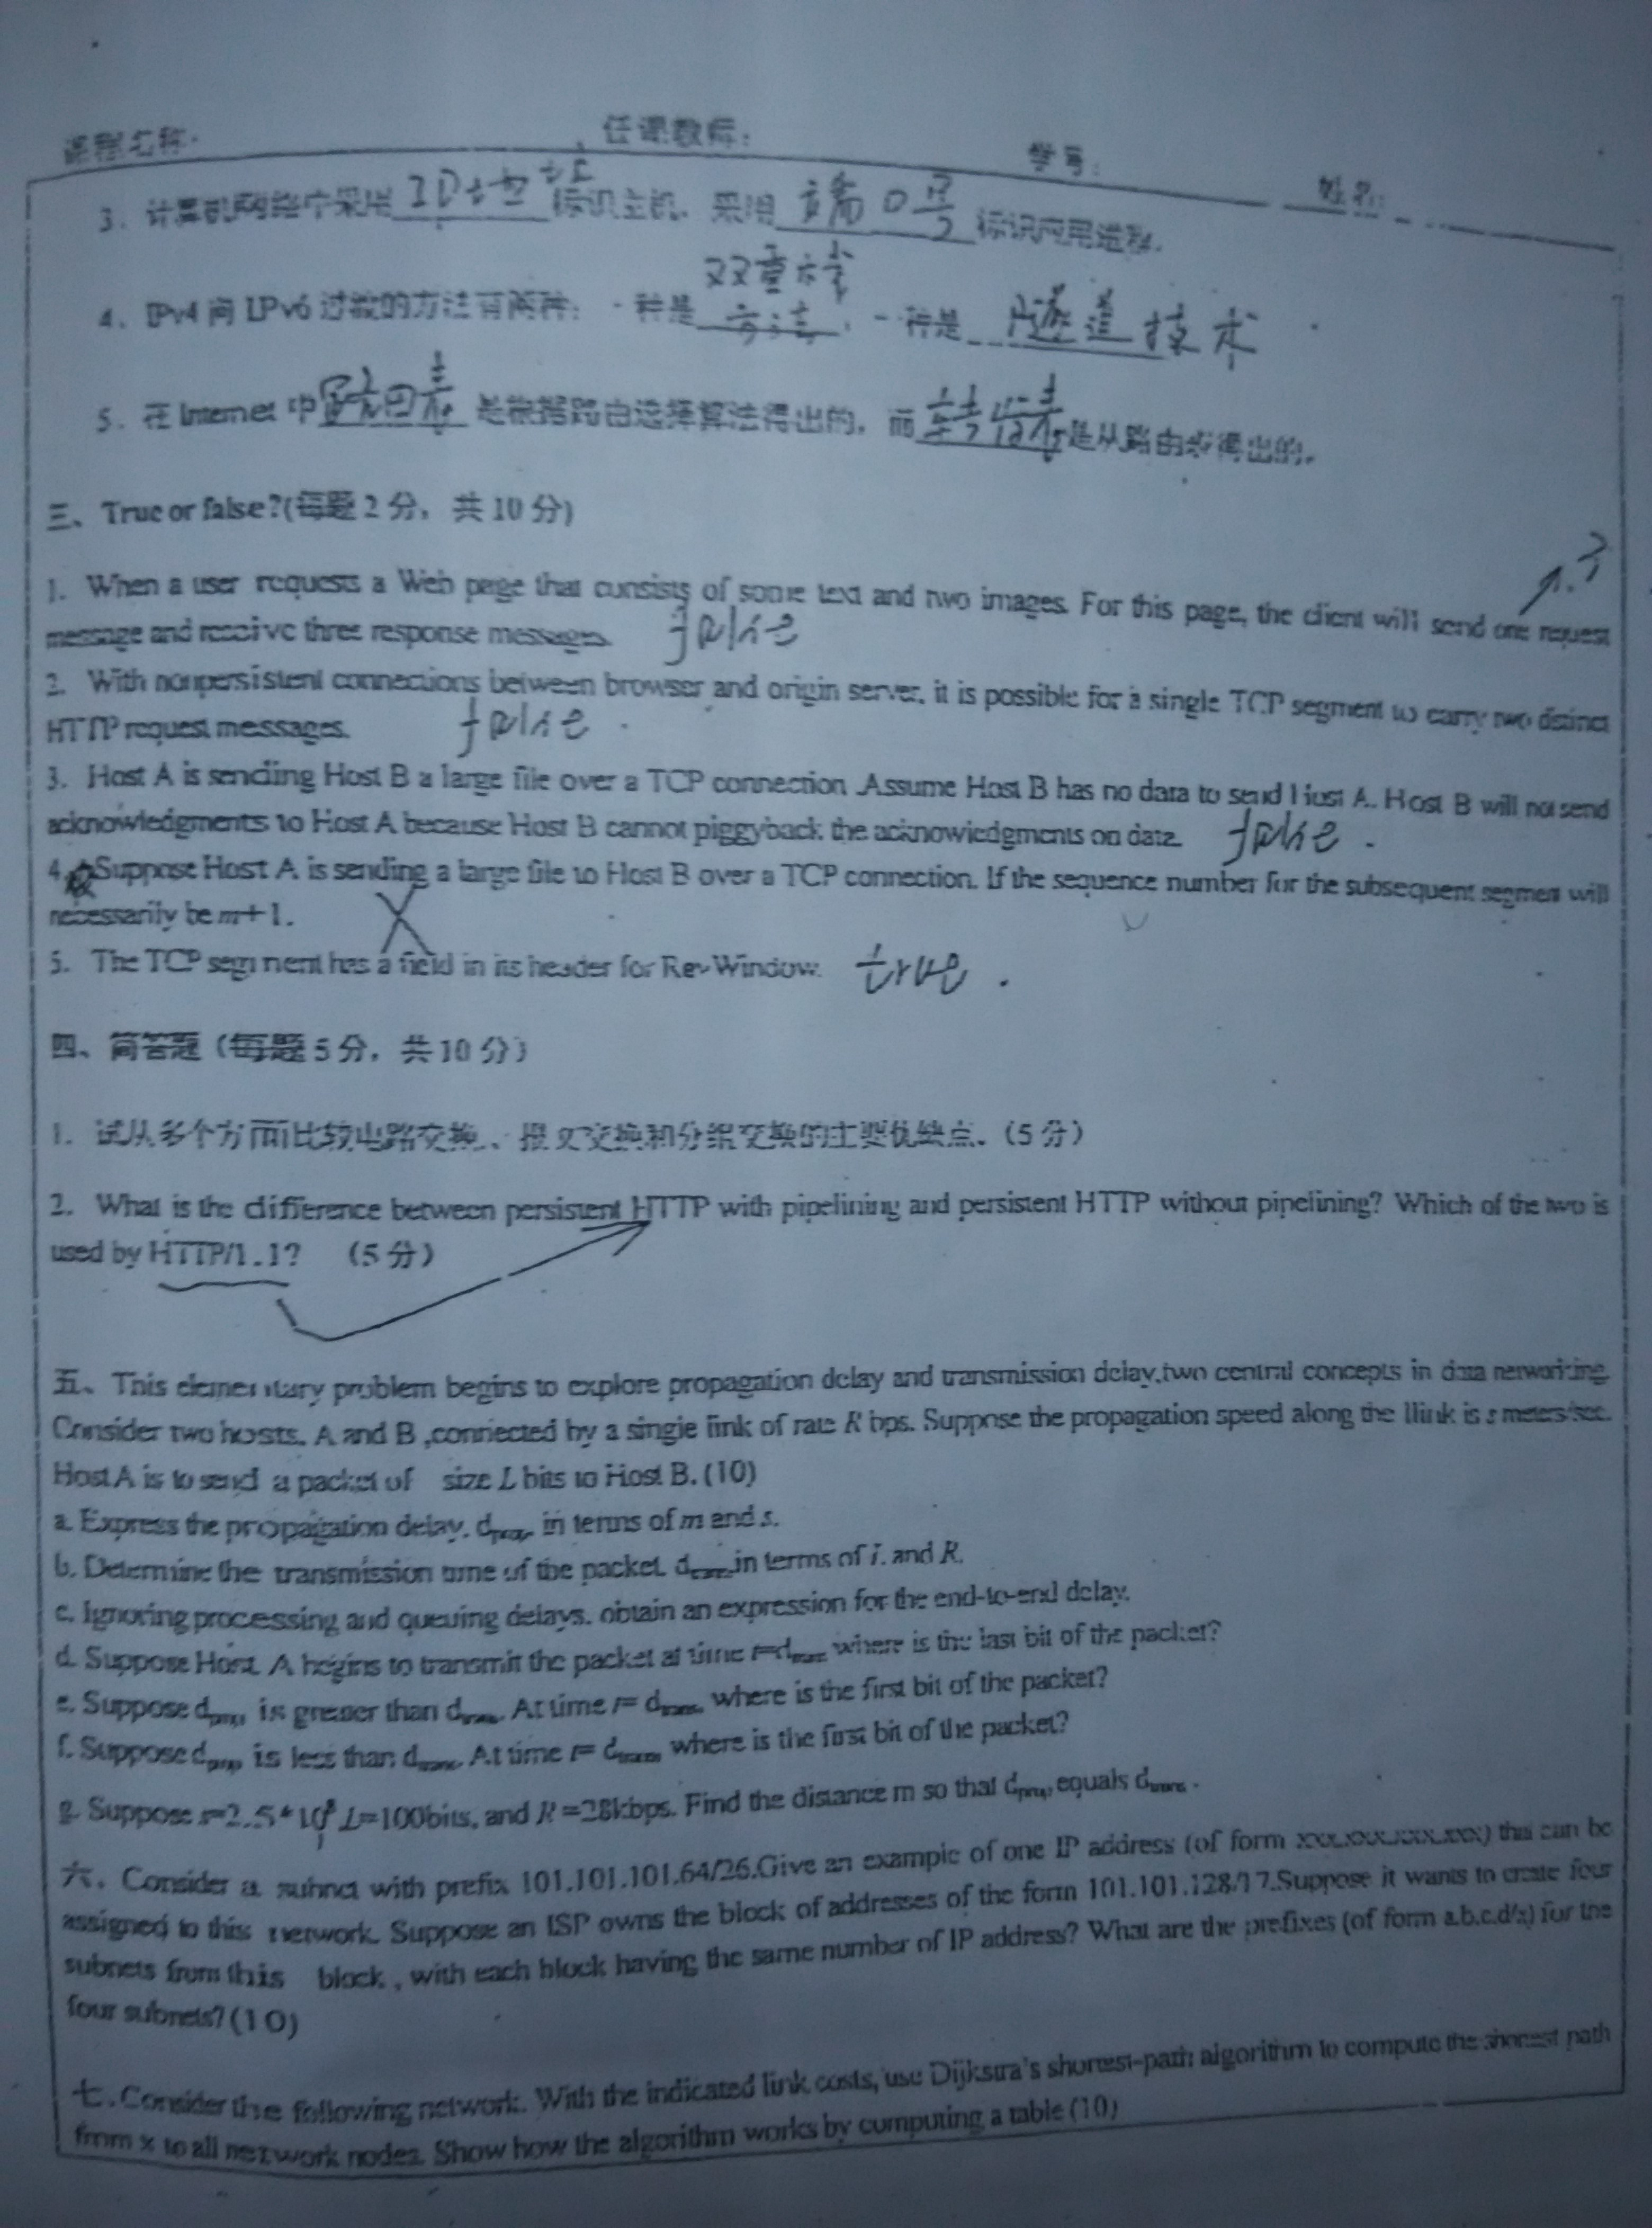 课程名称: 任课教师: 学号: 姓名:
3. 计算机网络中采用 IP地址 标识主机, 采用 端口号 标识应用进程.
双重栈
4. IPv4 向 IPv6 过渡的方法有两种: 一种是 方法, 一种是 隧道技术
5. 在 Internet 中 路由表 是根据路由选择算法得出的, 而 转发表 是从路由表得出的.
三、True or false?(每题 2 分, 共 10 分)
?
1. When a user requests a Web page that consists of some text and two images. For this page, the client will send one request
message and receive three response messages. false
2. With nonpersistent connections between browser and origin server, it is possible for a single TCP segment to carry two distinct
HTTP request messages. false.
3. Host A is sending Host B a large file over a TCP connection. Assume Host B has no data to send Host A. Host B will not send
acknowledgments to Host A because Host B cannot piggyback the acknowledgments on data. false.
4. Suppose Host A is sending a large file to Host B over a TCP connection. If the sequence number for the subsequent segment will
necessarily be m+1. X
5. The TCP segment has a field in its header for RevWindow. true.
四、简答题 (每题 5 分, 共 10 分)
1. 试从多个方面比较电路交换、报文交换和分组交换的主要优缺点. (5 分)
2. What is the difference between persistent HTTP with pipelining and persistent HTTP without pipelining? Which of the two is
used by HTTP/1.1? (5 分)
五、This elementary problem begins to explore propagation delay and transmission delay,two central concepts in data networking.
Consider two hosts, A and B ,connected by a single link of rate R bps. Suppose the propagation speed along the llink is s meters/sec.
Host A is to send a packet of size L bits to Host B. (10)
a. Express the propagation delay, dprop, in terms of m and s.
b. Determine the transmission time of the packet, dtrans in terms of L and R.
c. Ignoring processing and queuing delays, obtain an expression for the end-to-end delay.
d. Suppose Host A begins to transmit the packet at time t=dtrans where is the last bit of the packet?
e. Suppose dprop is greater than dtrans. At time t= dtrans, where is the first bit of the packet?
f. Suppose dprop is less than dtrans. At time t= dtrans, where is the first bit of the packet?
g. Suppose s=2.5*10⁸ L=100bits, and R =28kbps. Find the distance m so that dprop equals dtrans.
六. Consider a subnet with prefix 101.101.101.64/26.Give an example of one IP address (of form xxx.xxx.xxx.xxx) that can be
assigned to this network. Suppose an ISP owns the block of addresses of the form 101.101.128/17.Suppose it wants to create four
subnets from this block , with each block having the same number of IP address? What are the prefixes (of form a.b.c.d/x) for the
four subnets? (10)
七. Consider the following network. With the indicated link costs, use Dijkstra's shortest-path algorithm to compute the shortest path
from x to all network nodes. Show how the algorithm works by computing a table (10)